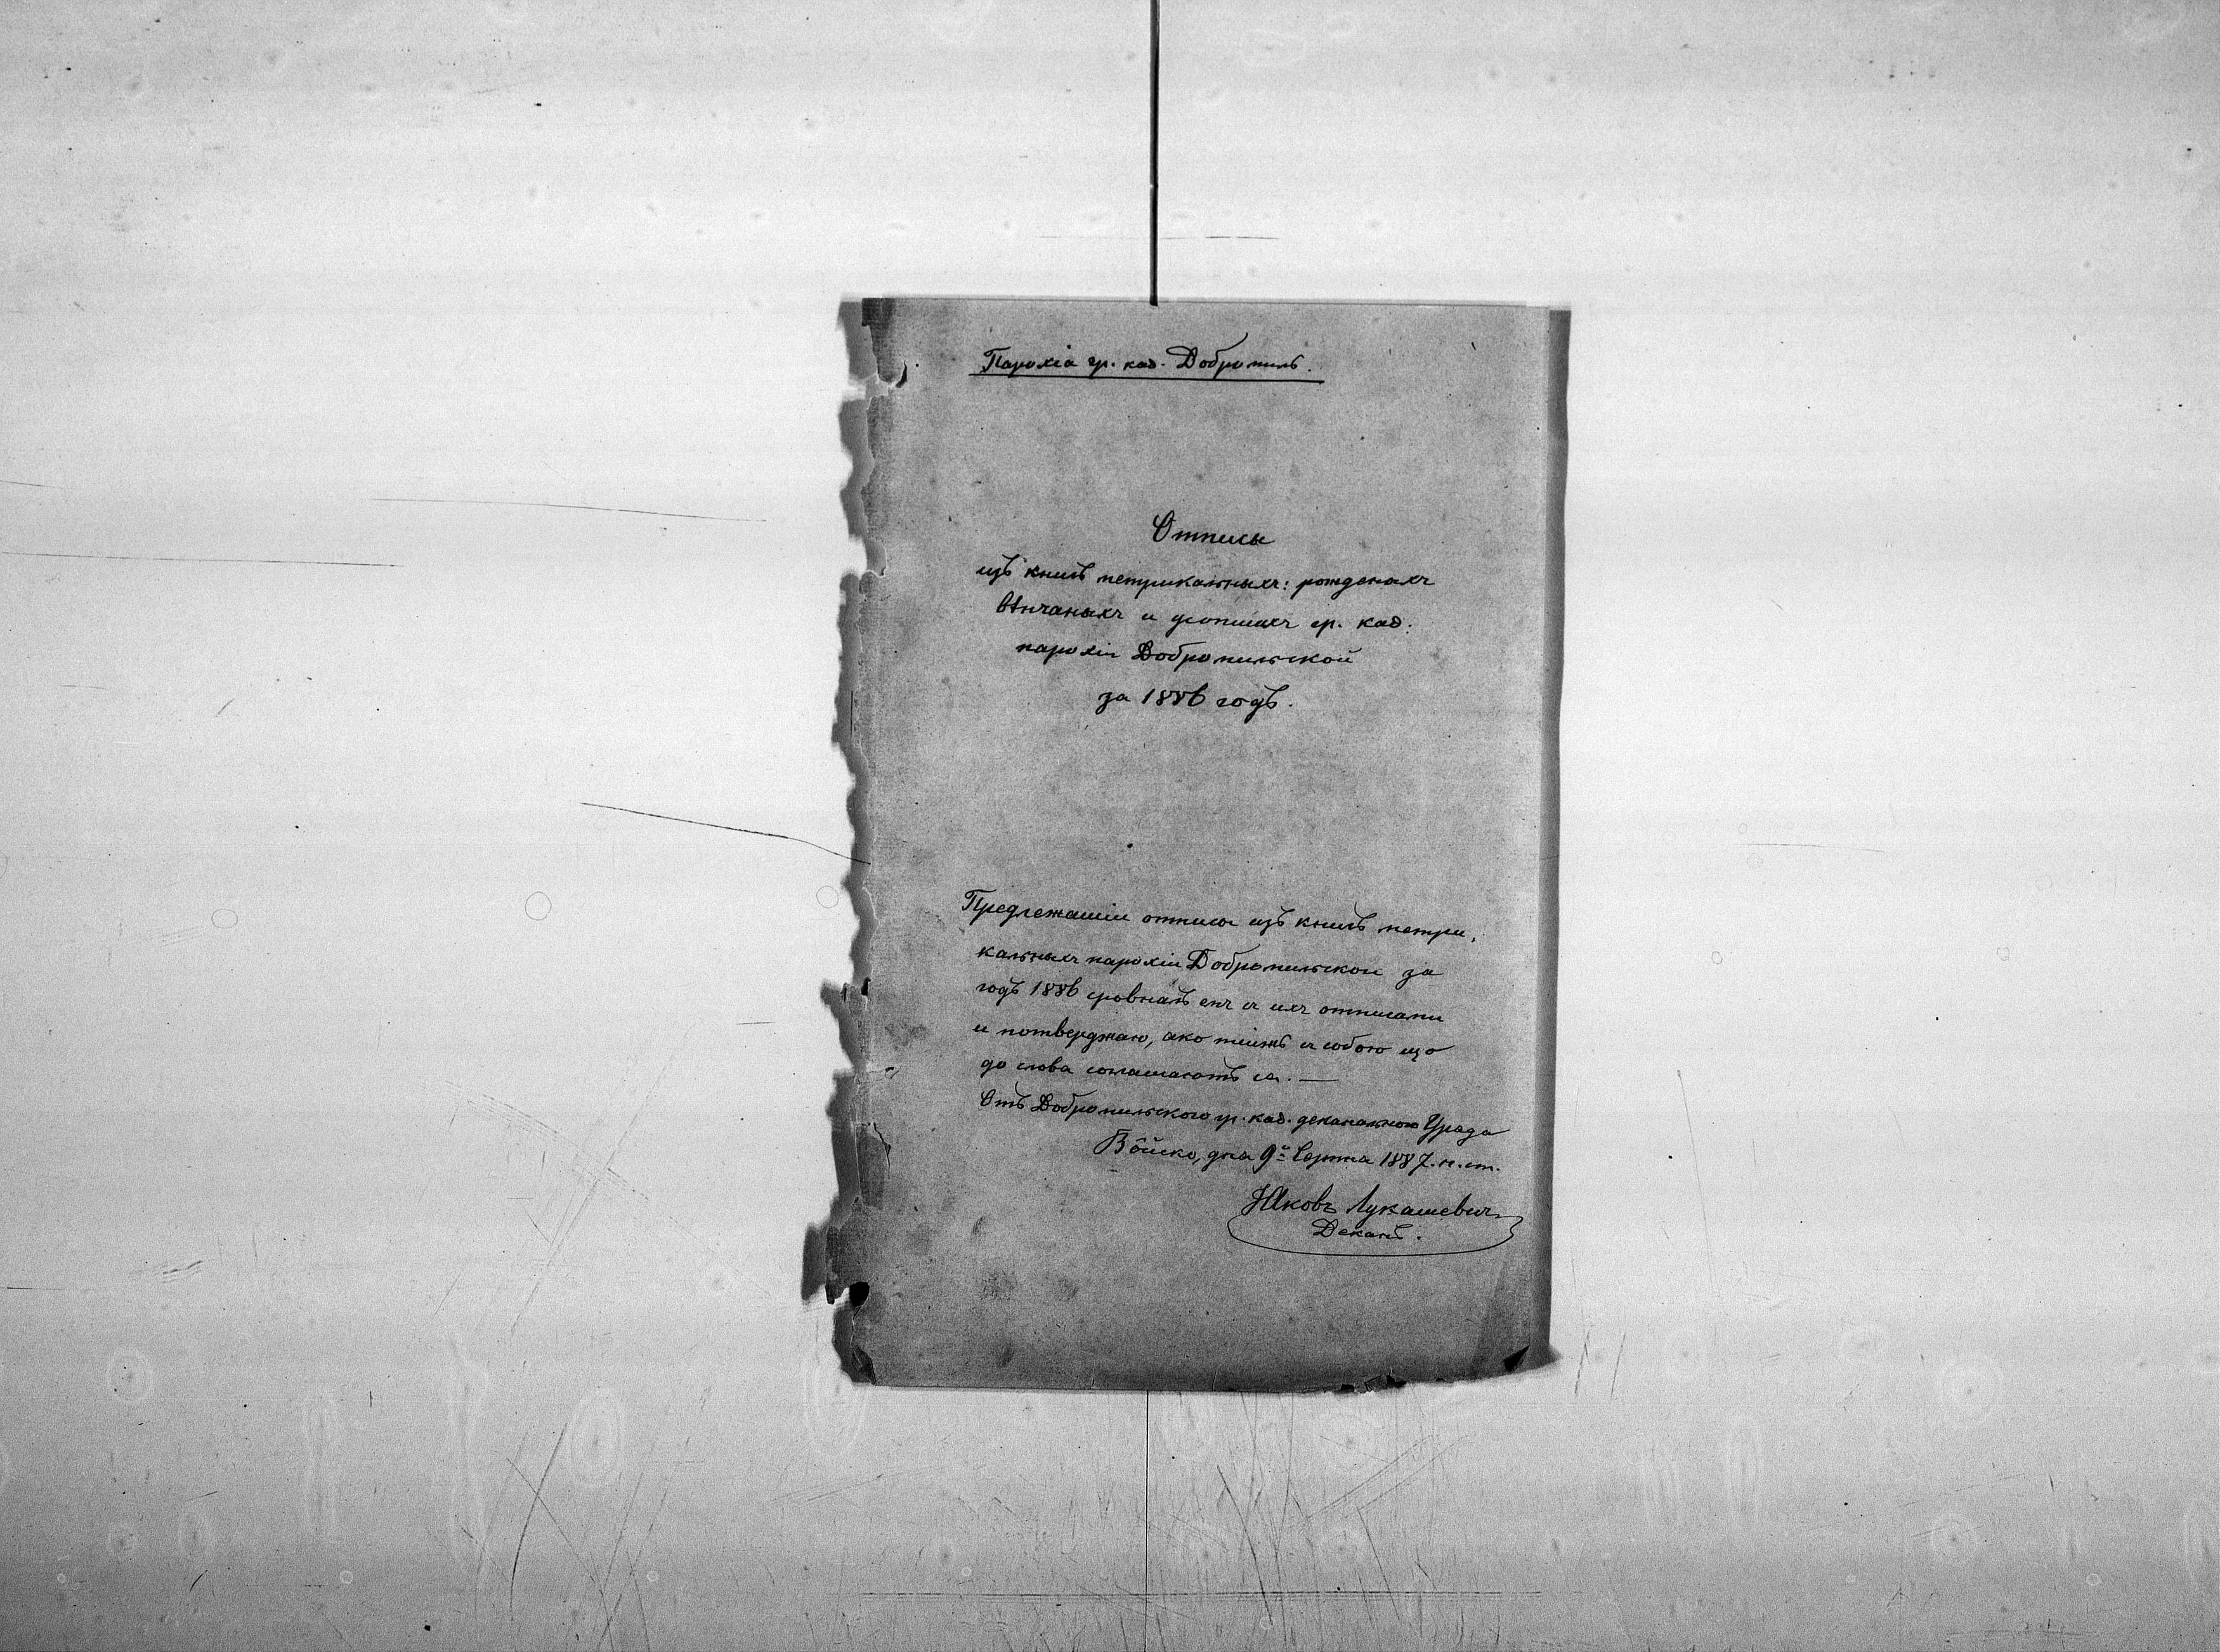 Парохія гр. каѳ. Добромиль.
Отписы
изъ книгъ метрикальныхъ: рожденыхъ
вѣнчаныхъ и усопшихъ гр. каѳ.
парохіи Добромильской
за 1886 годъ.
Предлежащіи отписы изъ книгъ метри,
кальныхъ парохіи Добромильской за
годъ 1886 съ ихъ отписами
и потверджаю, ако тіижъ съ собою що
до слова соглашаютъ ся. —
Отъ Добромильского гр. каѳ. деканального Уряда
Войско, дня 9го Серпня 1887. н. ст.
Яковъ Лукашевич
Деканъ.